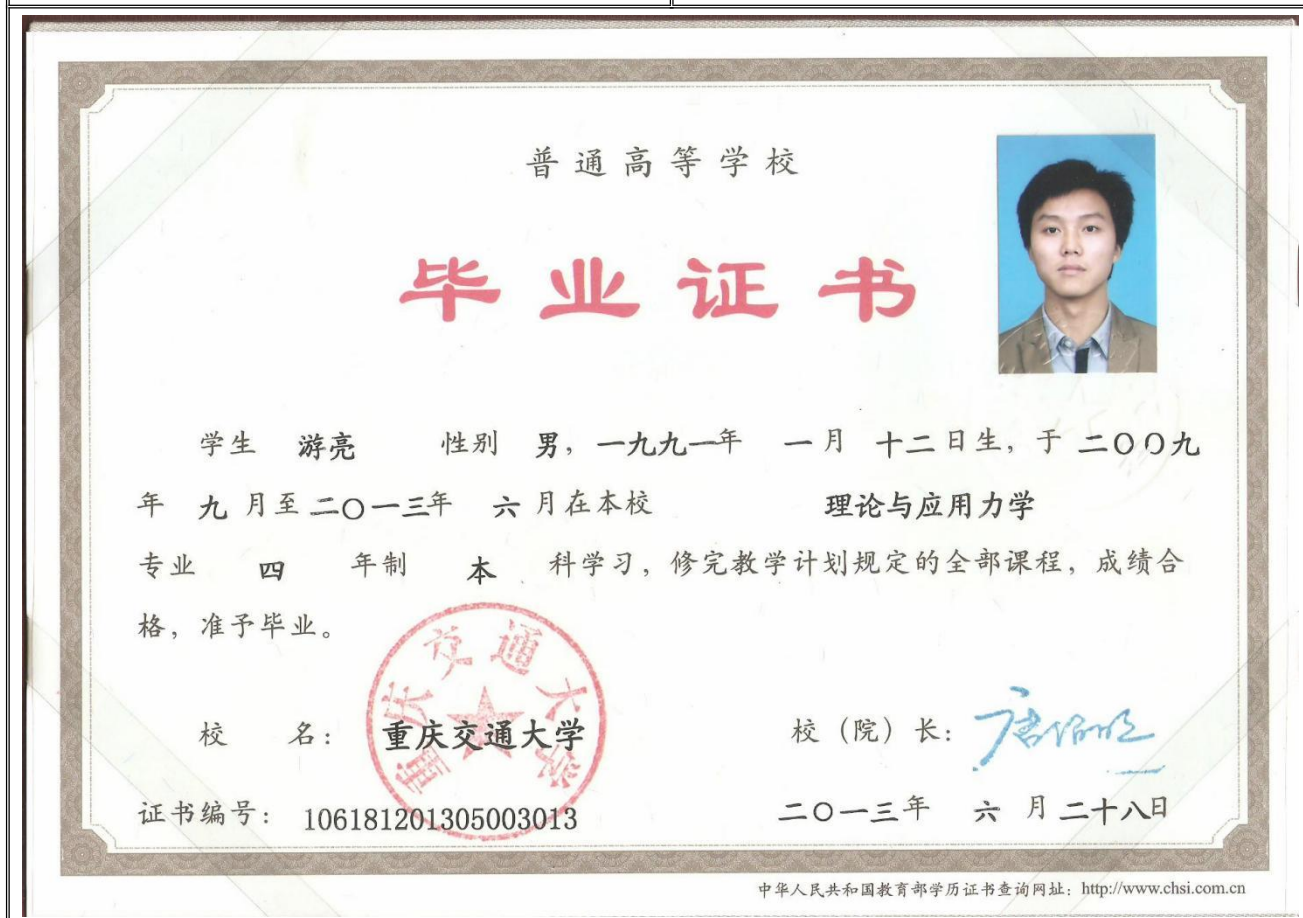 普通高等学校
毕业证书
学生 游亮 性别 男，一九九一年 一月 十二日生，于 二〇〇九
年 九 月至二〇一三年 六 月在本校 理论与应用力学
专业 四 年制 本 科学习，修完教学计划规定的全部课程，成绩合
格，准予毕业。
重庆交通大学
校 名：重庆交通大学
校（院）长：唐伯明
证书编号：106181201305003013
二〇一三年 六 月二十八日
中华人民共和国教育部学历证书查询网址：http://www.chsi.com.cn